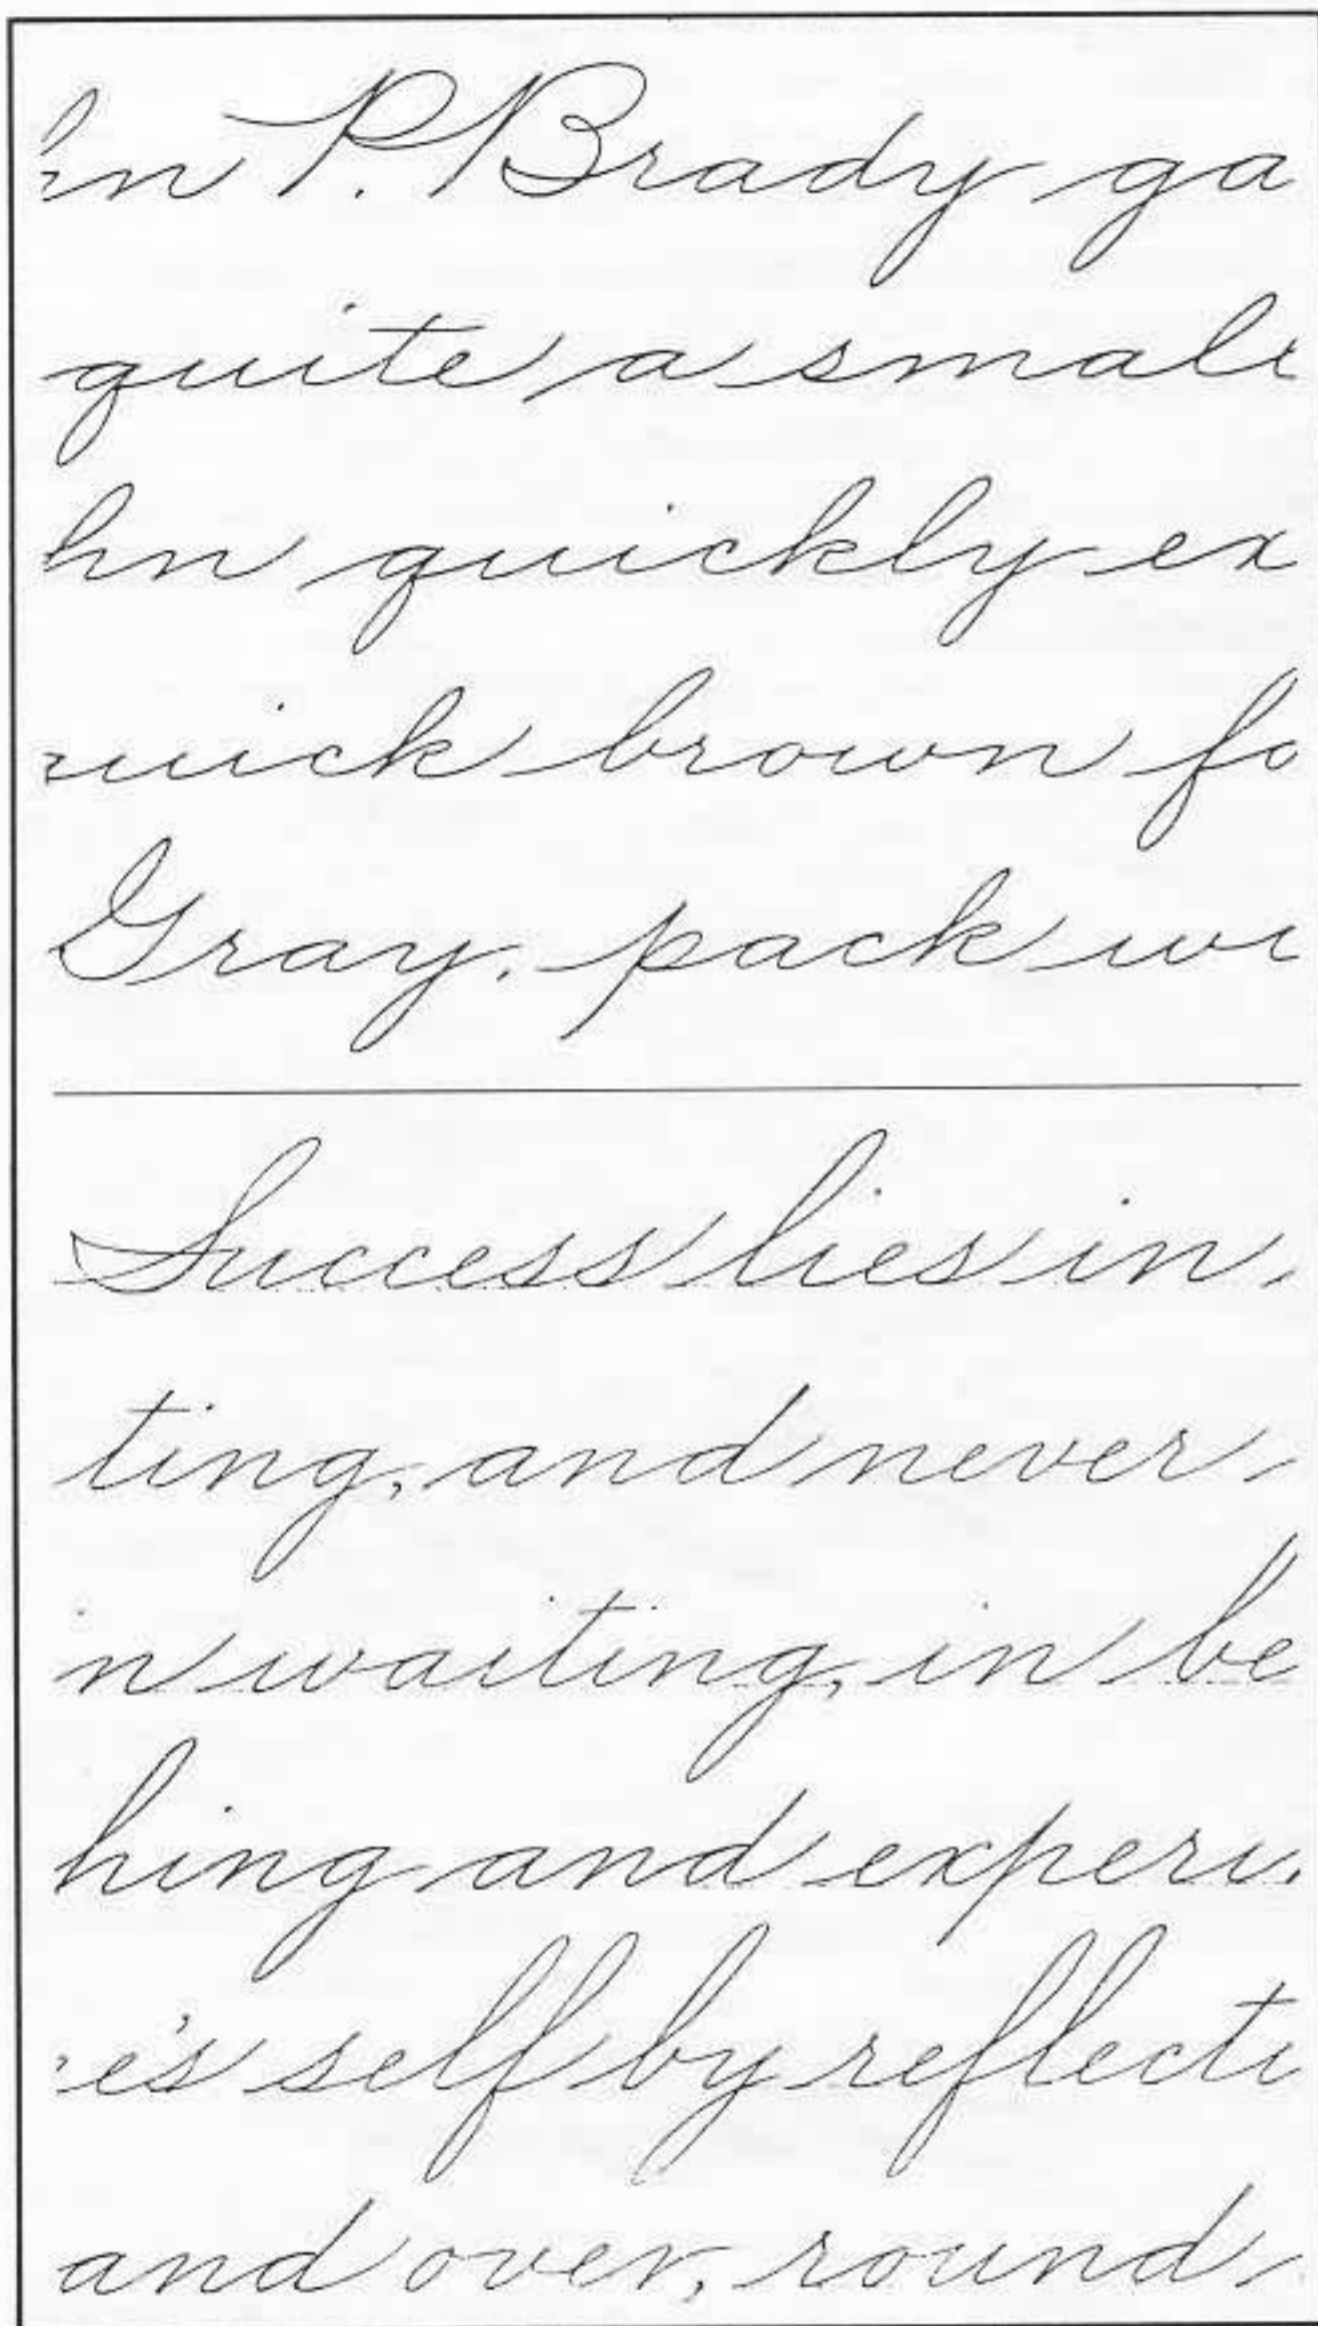 hn P. Brady ga
quite a small
hn quickly ex
uick brown fo
Gray. pack wi
Success lies in
ting, and never
in waiting, in be
hing and experi
e's self by reflecti
and over, round